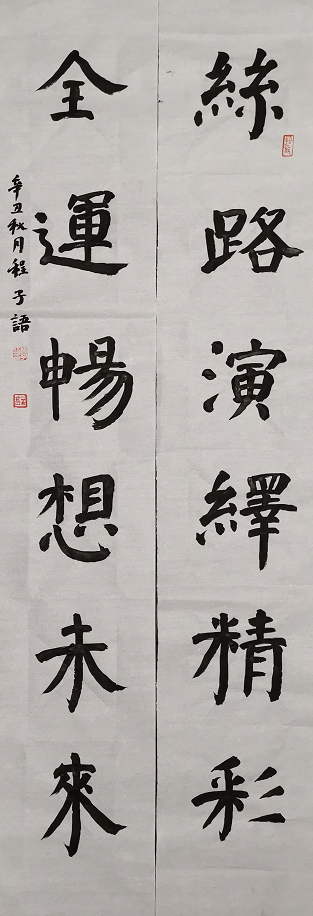 絲路演繹精彩
全運暢想未來
辛丑秋月程子語